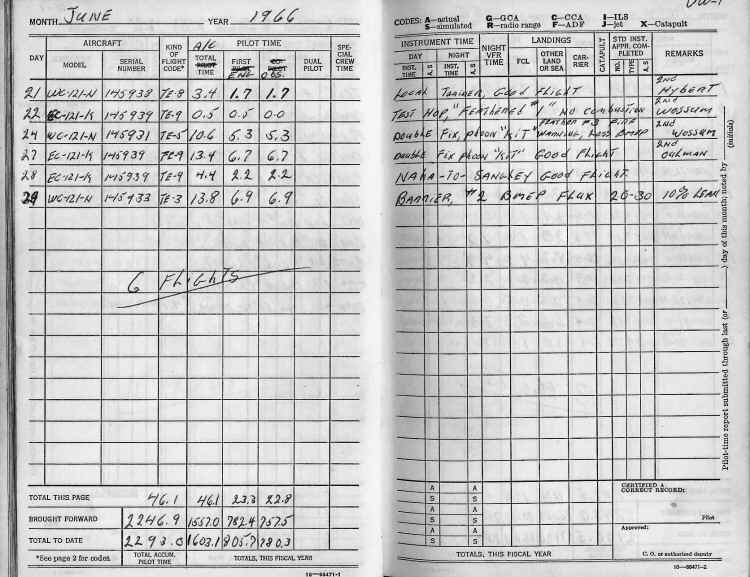 MONTH JUNE YEAR 1966
AIRCRAFT KIND OF FLIGHT CODE* A/C TOTAL PILOT TIME PILOT TIME SPECIAL CREW TIME
DAY MODEL SERIAL NUMBER FIRST PILOT ENG CO-PILOT OBS. DUAL PILOT
21 WC-121-N 145938 TE-8 3.4 1.7 1.7
22 EC-121-K 145939 TE-9 0.5 0.5 0.0
24 WC-121-N 145931 TE-5 10.6 5.3 5.3
27 EC-121-K 145939 TE-9 13.4 6.7 6.7
28 EC-121-K 145939 TE-9 4.4 2.2 2.2
29 WC-121-N 145933 TE-3 13.8 6.9 6.9
6 FLIGHTS
TOTAL THIS PAGE 46.1 46.1 23.3 22.8
BROUGHT FORWARD 2246.9 1557.0 782.4 757.5
TOTAL TO DATE 2293.0 1603.1 805.7 780.3
*See page 2 for codes TOTAL ACCUM. PILOT TIME TOTALS, THIS FISCAL YEAR
16—66471-1
CODES: A—actual G—GCA C—CCA I—ILS
S—simulated R—radio range F—ADF J—jet X—Catapult
INSTRUMENT TIME NIGHT VFR TIME LANDINGS CATAPULT STD INST. APPR. COMPLETED REMARKS
DAY NIGHT FCL OTHER LAND OR SEA CARRIER NO. TYPE A, S
INST. TIME A, S INST. TIME A, S
LOCAL TRAINER, GOOD FLIGHT 2ND HYBERT
TEST HOP, "FEATHERED #1" NO COMBUSTION 2ND WOSSUM
FEATHER #3 FIRE
DOUBLE FIX, PHOON "KIT" WARNING, LOSS BMEP 2ND WOSSUM
DOUBLE FIX PHOON "KIT" GOOD FLIGHT 2ND
NAHA-TO-SANGLEY GOOD FLIGHT
BARRIER, #2 BMEP FLUX 20-30 10% LEAN
A A
S S
A A
S S
A A
S S
TOTALS, THIS FISCAL YEAR
CERTIFIED A CORRECT RECORD:
Pilot
Approved:
C. O. or authorized deputy
16—66471-2
Pilot-time report submitted through last (or ) day of this month; noted by (initials)